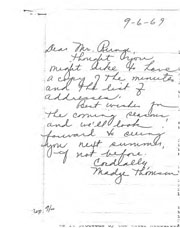 9-6-69
Dear Mr.
thought you
might like to have
a copy of the minutes
and the list of
addresses.
Best wishes for
the coming season
and we'll look
forward to seeing
you next summer,
if not before.
Cordially,
Madge Thomson